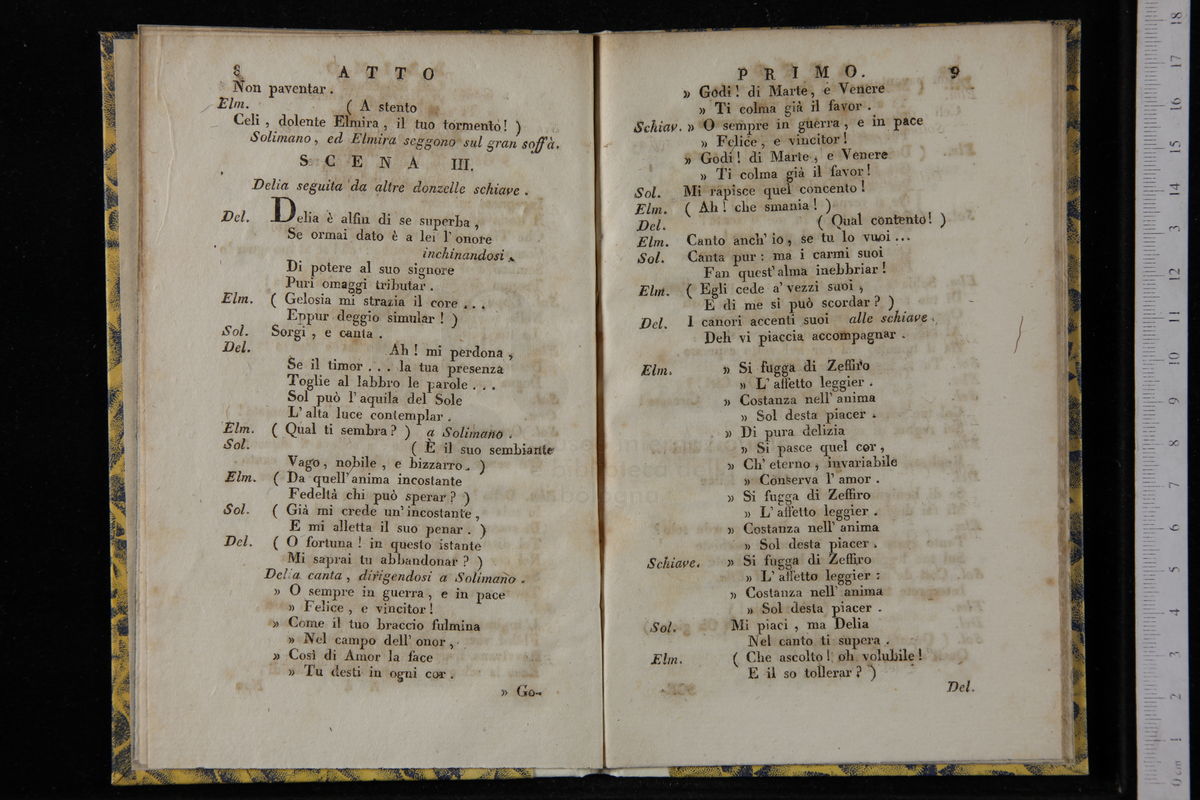 8 ATTO
Non paventar .
Elm. ( A stento
Celi , dolente Elmira , il tuo tormento ! )
Solimano , ed Elmira seggono sul gran soffà.
SCENA III.
Delia seguita da altre donzelle schiave .
Del. Delia è alfin di se superba ,
Se ormai dato è a lei l' onore
inchinandosi .
Di potere al suo signore
Puri omaggi tributar .
Elm. ( Gelosia mi strazia il core . . .
Eppur deggio simular ! )
Sol. Sorgi , e canta .
Del. Ah ! mi perdona ,
Se il timor . . . la tua presenza
Toglie al labbro le parole . . .
Sol può l' aquila del Sole
L' alta luce contemplar .
Elm. ( Qual ti sembra ? ) a Solimano .
Sol. ( È il suo sembiante
Vago , nobile , e bizzarro . )
Elm. ( Da quell' anima incostante
Fedeltà chi può sperar ? )
Sol. ( Già mi crede un' incostante ,
E mi alletta il suo penar . )
Del. ( O fortuna ! in questo istante
Mi saprai tu abbandonar ? )
Delia canta , dirigendosi a Solimano .
» O sempre in guerra , e in pace
» Felice , e vincitor !
» Come il tuo braccio fulmina
» Nel campo dell' onor ,
» Così di Amor la face
» Tu desti in ogni cor .
» Go-
PRIMO. 9
» Godi ! di Marte , e Venere
» Ti colma già il favor .
Schiav. » O sempre in guerra , e in pace
» Felice , e vincitor !
» Godi ! di Marte , e Venere
» Ti colma già il favor !
Sol. Mi rapisce quel concento !
Elm. ( Ah ! che smania ! )
Del. ( Qual contento ! )
Elm. Canto anch' io , se tu lo vuoi ...
Sol. Canta pur : ma i carmi suoi
Fan quest' alma inebbriar !
Elm. ( Egli cede a' vezzi suoi ,
E di me si può scordar ? )
Del. I canori accenti suoi alle schiave .
Deh vi piaccia accompagnar .
Elm. » Si fugga di Zeffiro
» L' affetto leggier .
» Costanza nell' anima
» Sol desta piacer .
» Di pura delizia
» Si pasce quel cor ,
» Ch' eterno , invariabile
» Conserva l' amor .
» Si fugga di Zeffiro
» L' affetto leggier .
» Costanza nell' anima
» Sol desta piacer .
Schiave. » Si fugga di Zeffiro
» L' affetto leggier :
» Costanza nell' anima
» Sol desta piacer .
Sol. Mi piaci , ma Delia
Nel canto ti supera .
Elm. ( Che ascolto ! oh volubile !
E il so tollerar ? )
Del.